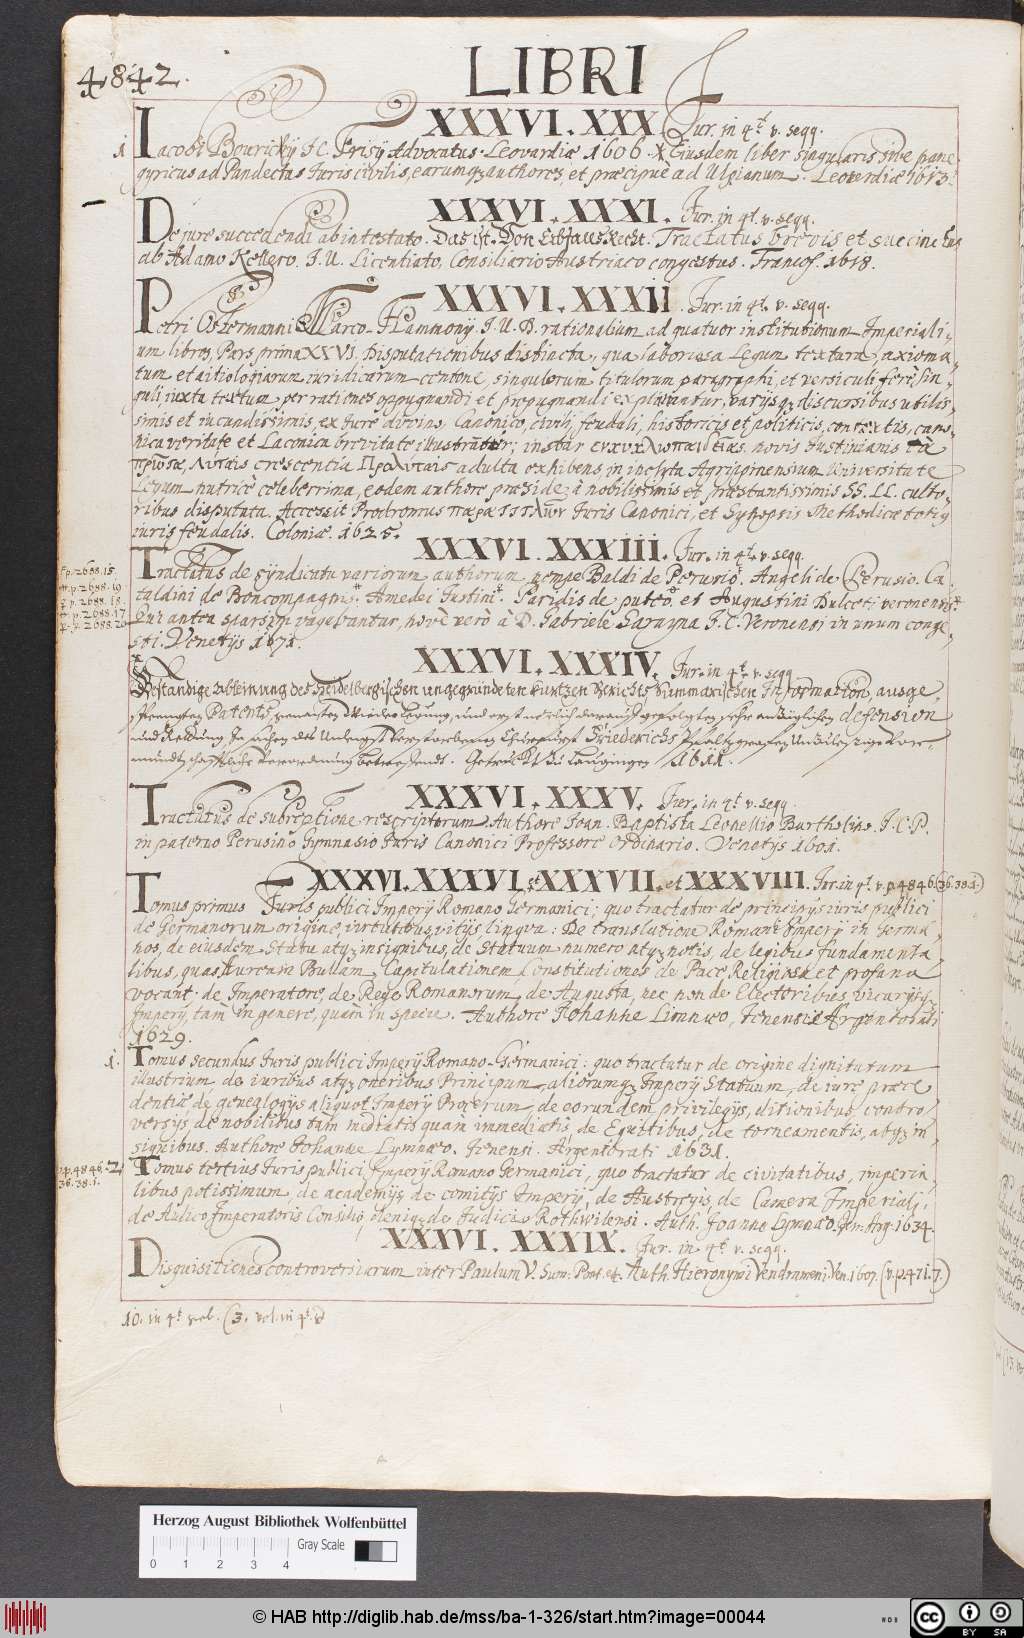 4842.
LIBRI
XXXVI. XXX. Jur. in 4.t v. seqq.
1 Iacobi Bouricij JC. Frisij Advocatus. Leovardiæ 1606. Eiusdem liber singularis sive pane-
gyricus ad Pandectas Juris civilis, earumqȝ authores, et præcipuè ad Ulpianum. Leoverdiæ 1613.
XXXVI. XXXI. Jur. in 4.t v. seqq.
De jure succedendi ab intestato. Das ist. Von Erbfalls Recht. Tractatus brevis et succinctus
ab Adamo Kellero. J.U. Licentiato, Consiliario Austriaco congestus. Francof. 1618.
XXXVI. XXXII. Jur. in 4.t v. seqq.
Petri Ostermanni Marco-Hammonij. J.U.D. rationalium ad quatuor institutionum Imperiali-
um libros, Pars prima XXVI. Disputationibus distincta, qua laboriosa Legum textura, axioma-
tum et aitiologiarum iuridicarum centone, singulorum titulorum paragraphi, et versiculi ferè sin-
guli iuxta textum per rationes oppugnandi et propugnandi explanantur, varysqȝ discursibus utilis-
simis et iucundissimis, ex Jure divino, Canonico, civili, feudali, historicis et politicis, contextis, cano-
nica veritate et Laconica brevitate illustratur; instar novis Justinianis τὰ
πρῶτα, Λυταis crescentia Προλυταιs adulta exhibens in inclyta Agrippinensium Universitate
Legum nutrice celeberrima, eodem authore præside, à nobilissimis et præstantissimis SS. LL. culto-
ribus disputata. Accessit Prodromus Juris Canonici, et Synopsis Methodicæ totiq
iuris feudalis. Coloniæ. 1625.
XXXVI. XXXIII. Jur. in 4.t v. seqq.
p. 2688. 15.
p. 2688. 19
p. 2688. 18.
p. 2688. 17
p. 2688. 20
Tractatus de syndicatu variorum authorum, nempe Baldi de Perusio. Angeli de Perusio. Ca-
taldini de Boncompagnis. Amedei Justini. Paridis de puteo. et Augustini Dulceti veronensis.
Qui antea sparsim vagabantur, novè verò à D. Gabriele Sarayna J.C. Veronensi in unum conge-
sti. Venetijs 1571.
XXXVI. XXXIV. Jur. in 4.t v. seqq.
Bestandige ableinung des Heidelbergischen ungegründeten kurtzen Berichts Summarischen Information, ausge-
sprengten Patents, defension
Friederichs Pfaltzgrafen
Verordnung betreffendt. Getruckt zu Laugingen 1611.
XXXVI. XXXV. Jur. in 4.t v. seqq.
Tractatus de subreptione rescriptorum. Authore Joan. Baptista Leonellio Bartholino. J.C.P.
in paterno Perusino Gymnasio Juris Canonici Professore ordinario. Venetijs 1601.
XXXVI. XXXVI. et XXXVII. et XXXVIII. Jur. in 4.t v. p. 4846. (36. 38. 1.)
Tomus primus Juris publici Imperij Romano Germanici; quo tractatur de principijs iuris publici
de Germanorum origine, virtutibus, vitijs lingva: De translatione Romani Imperij in Germa-
nos, de eiusdem Statu atqȝ insignibus, de Statuum numero atqȝ notis, de legibus fundamenta
libus, quas, Auream Bullam, Capitulationem, Constitutiones de Pace Religiosa et profana
vocant. de Imperatore, de Rege Romanorum, de Augusta, nec non de Electoribus, vicarijsqȝ
Imperij, tam in genere, quàm in specie. Authore Johanne Limnæo, Jenensis Argentorati
1629.
1. Tomus secundus Juris publici Imperij Romano-Germanici: quo tractatur de origine dignitatum
illustrium de iuribus atqȝ oneribus Principum, aliorumqȝ Imperij Statuum, de iure præce
dentiæ de genealogijs aliquot Imperij Procerum, de eorundem privilegijs, ditionibus, contro-
versijs, de nobilibus tam mediatis quam immediatis, de Equitibus, de torneamentis, atqȝ in-
signibus. Authore Johanne Lymnæo. Jenensi. Argentorati 1631.
p. 4846. 2.
36. 38. 1.
Tomus tertius Juris publici Imperij Romano Germanici, quo tractatur de civitatibus, imperia-
libus potissimum, de academijs, de comitijs Imperij, de Austregis, de Camera Imperiali,
de Aulico Imperatoris Consilio, deniqȝ de Judicio Rothwilensi. Auth. Joanne Lymnæo. Jen. Arg. 1634.
XXXVI. XXXIX. Jur. in 4.t v. seqq.
Disquisitiones controversiarum inter Paulum V. Sum. Pont. et. Auth. Hieronymi Vendrameni Ven. 1607. (v. p. 471. 7.)
10. in 4.t (3. vol. in 4.t
Herzog August Bibliothek Wolfenbüttel
Gray Scale
0 1 2 3 4
© HAB http://diglib.hab.de/mss/ba-1-326/start.htm?image=00044
WDB
cc BY SA